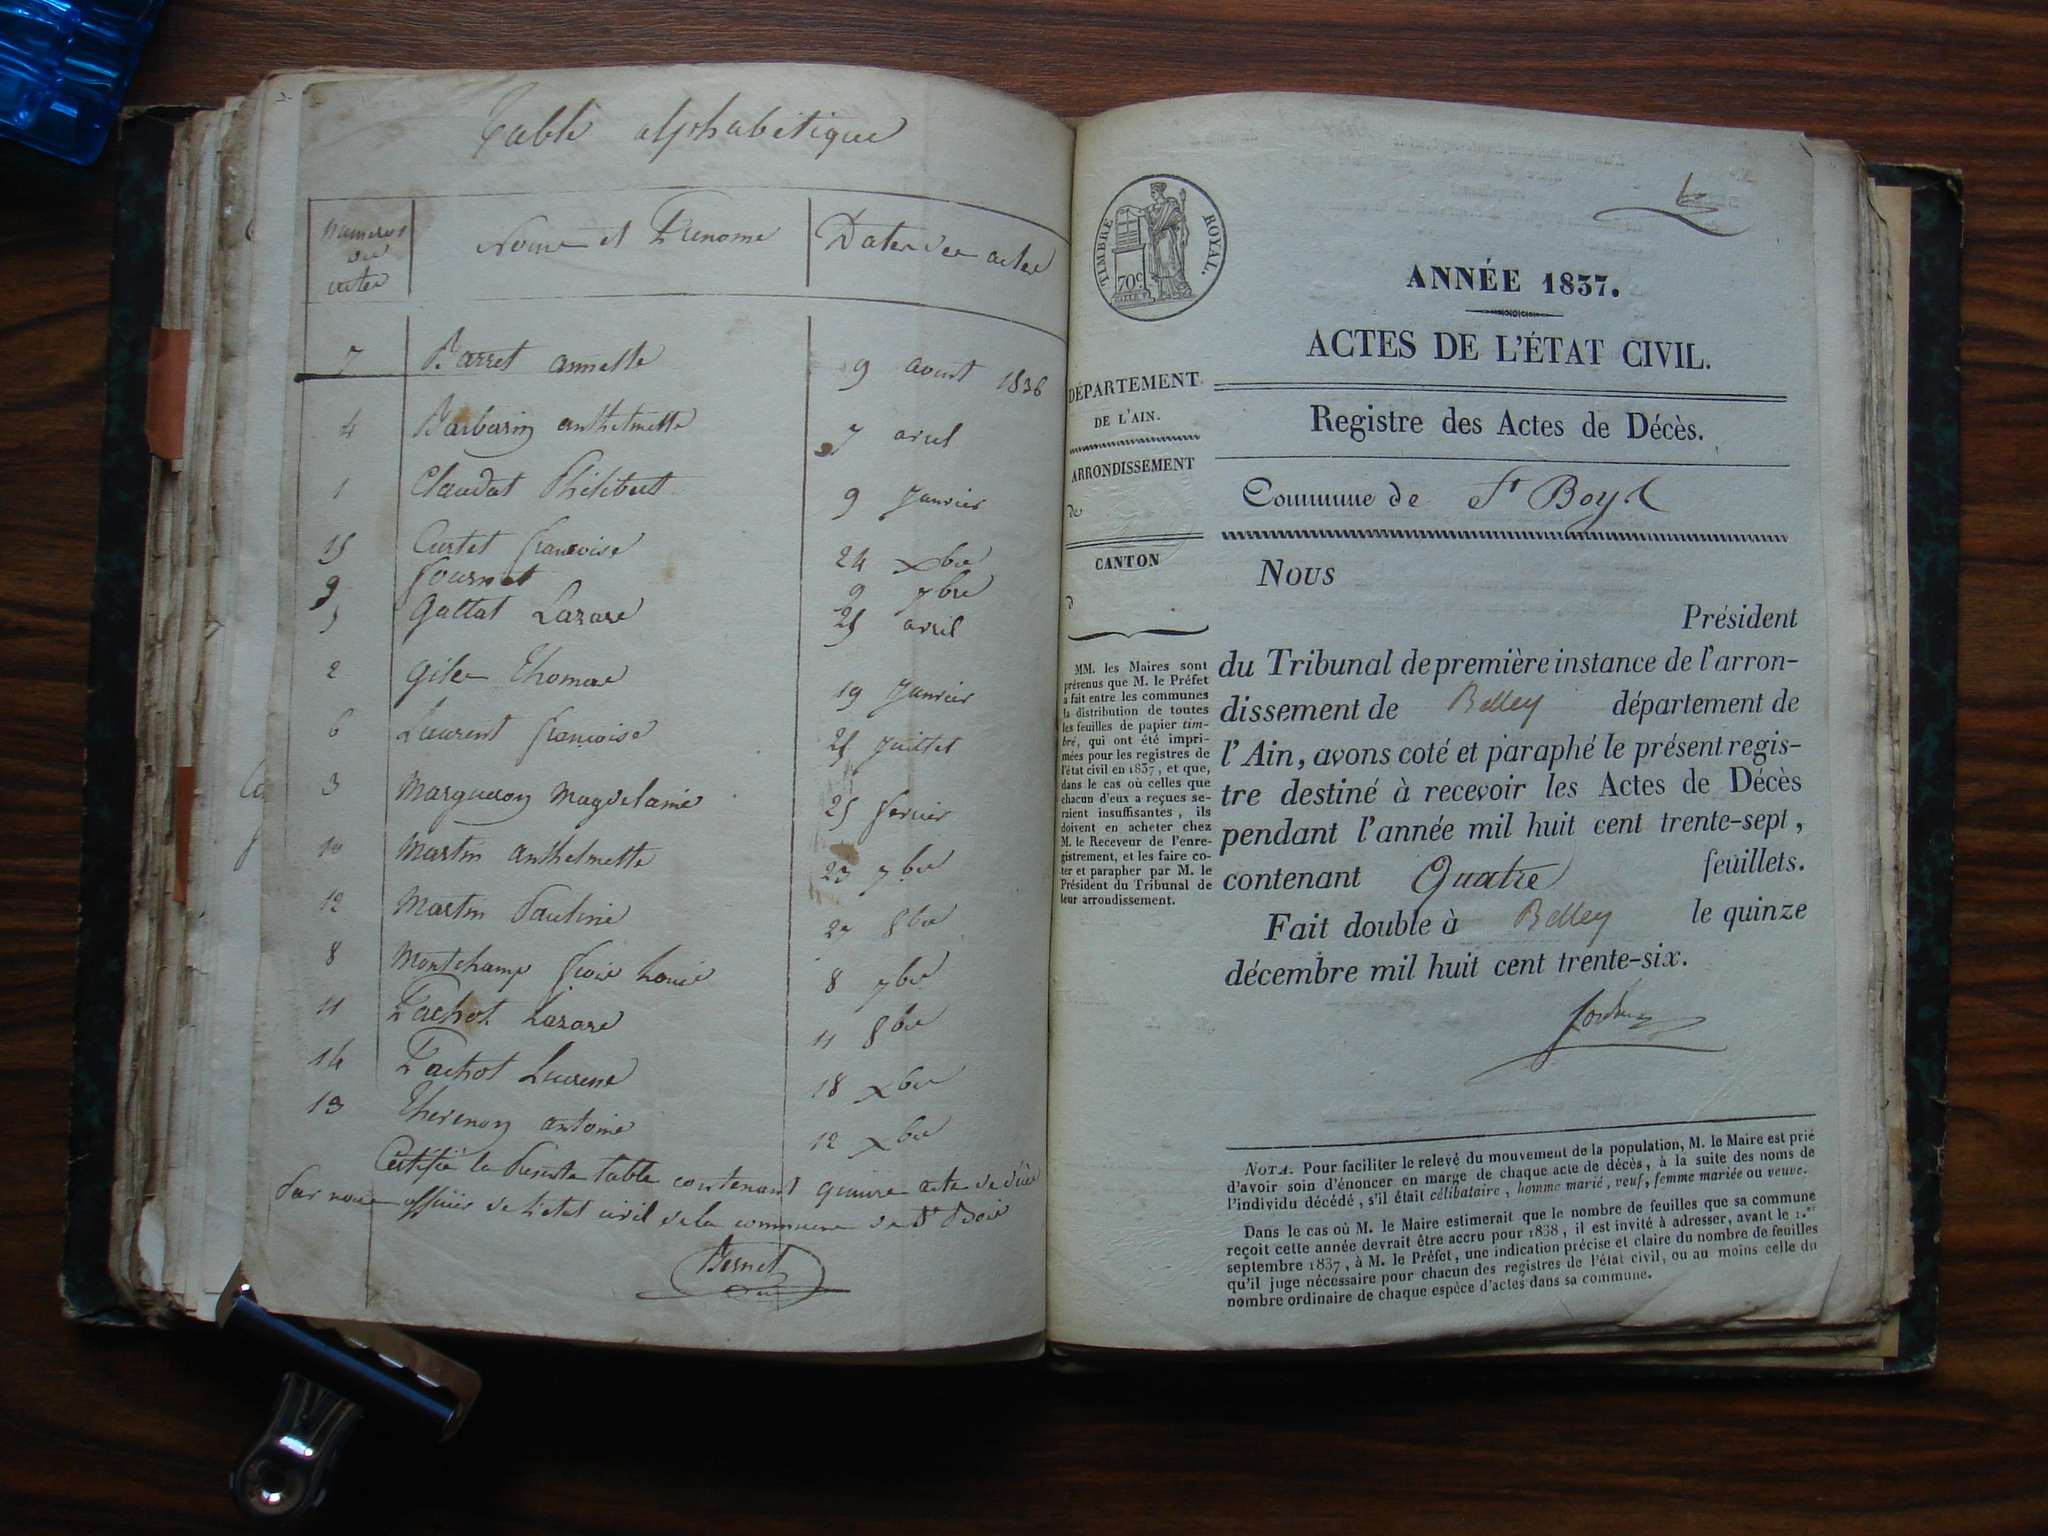 Table alphabétique
Numeros des actes
Noms et Prenoms
Dates des actes
7 Barret annette 9 aoust 1836
4 Barbarin anthelmette 7 avril
1 Claudat Philibert 9 Janvier
15 Curtet françoise 24 xbre
9 fournet 9 7bre
5 Gallat Lazare 25 avril
2 Giler Thomas 19 Janvier
6 Laurent françoise 25 Juillet
3 Margueron Magdelaine 25 fevrier
10 Martin anthelmette 23 7bre
12 Martin Pauline 27 8bre
8 Montchamp frois Louis 8 7bre
11 Pachot Lazare 11 8bre
14 Pachot 18 xbre
13 Thevenon antoine 12 xbre
Certifié la presente table contenant quinze actes de décès
Par nous officier de l'etat civil de la commune de St Bois
Bornet
TIMBRE ROYAL.
70c
ANNÉE 1837.
ACTES DE L'ÉTAT CIVIL.
Registre des Actes de Décès.
Commune de St Boys
DÉPARTEMENT
DE L'AIN.
ARRONDISSEMENT
de
CANTON
d
MM. les Maires sont
prévenus que M. le Préfet
a fait entre les communes
la distribution de toutes
les feuilles de papier tim-
bré, qui ont été impri-
mées pour les registres de
l'état civil en 1837, et que,
dans le cas où celles que
chacun d'eux a reçues se-
raient insuffisantes, ils
doivent en acheter chez
M. le Receveur de l'enre-
gistrement, et les faire co-
ter et parapher par M. le
Président du Tribunal de
leur arrondissement.
Nous
Président
du Tribunal de première instance de l'arron-
dissement de Belley département de
l'Ain, avons coté et paraphé le présent regis-
tre destiné à recevoir les Actes de Décès
pendant l'année mil huit cent trente-sept,
contenant Quatre feuillets.
Fait double à Belley le quinze
décembre mil huit cent trente-six.
NOTA. Pour faciliter le relevé du mouvement de la population, M. le Maire est prié
d'avoir soin d'énoncer en marge de chaque acte de décès, à la suite des noms de
l'individu décédé, s'il était célibataire, homme marié, veuf, femme mariée ou veuve.
Dans le cas où M. le Maire estimerait que le nombre de feuilles que sa commune
reçoit cette année devrait être accru pour 1838, il est invité à adresser, avant le 1.er
septembre 1837, à M. le Préfet, une indication précise et claire du nombre de feuilles
qu'il juge nécessaire pour chacun des registres de l'état civil, ou au moins celle du
nombre ordinaire de chaque espèce d'actes dans sa commune.